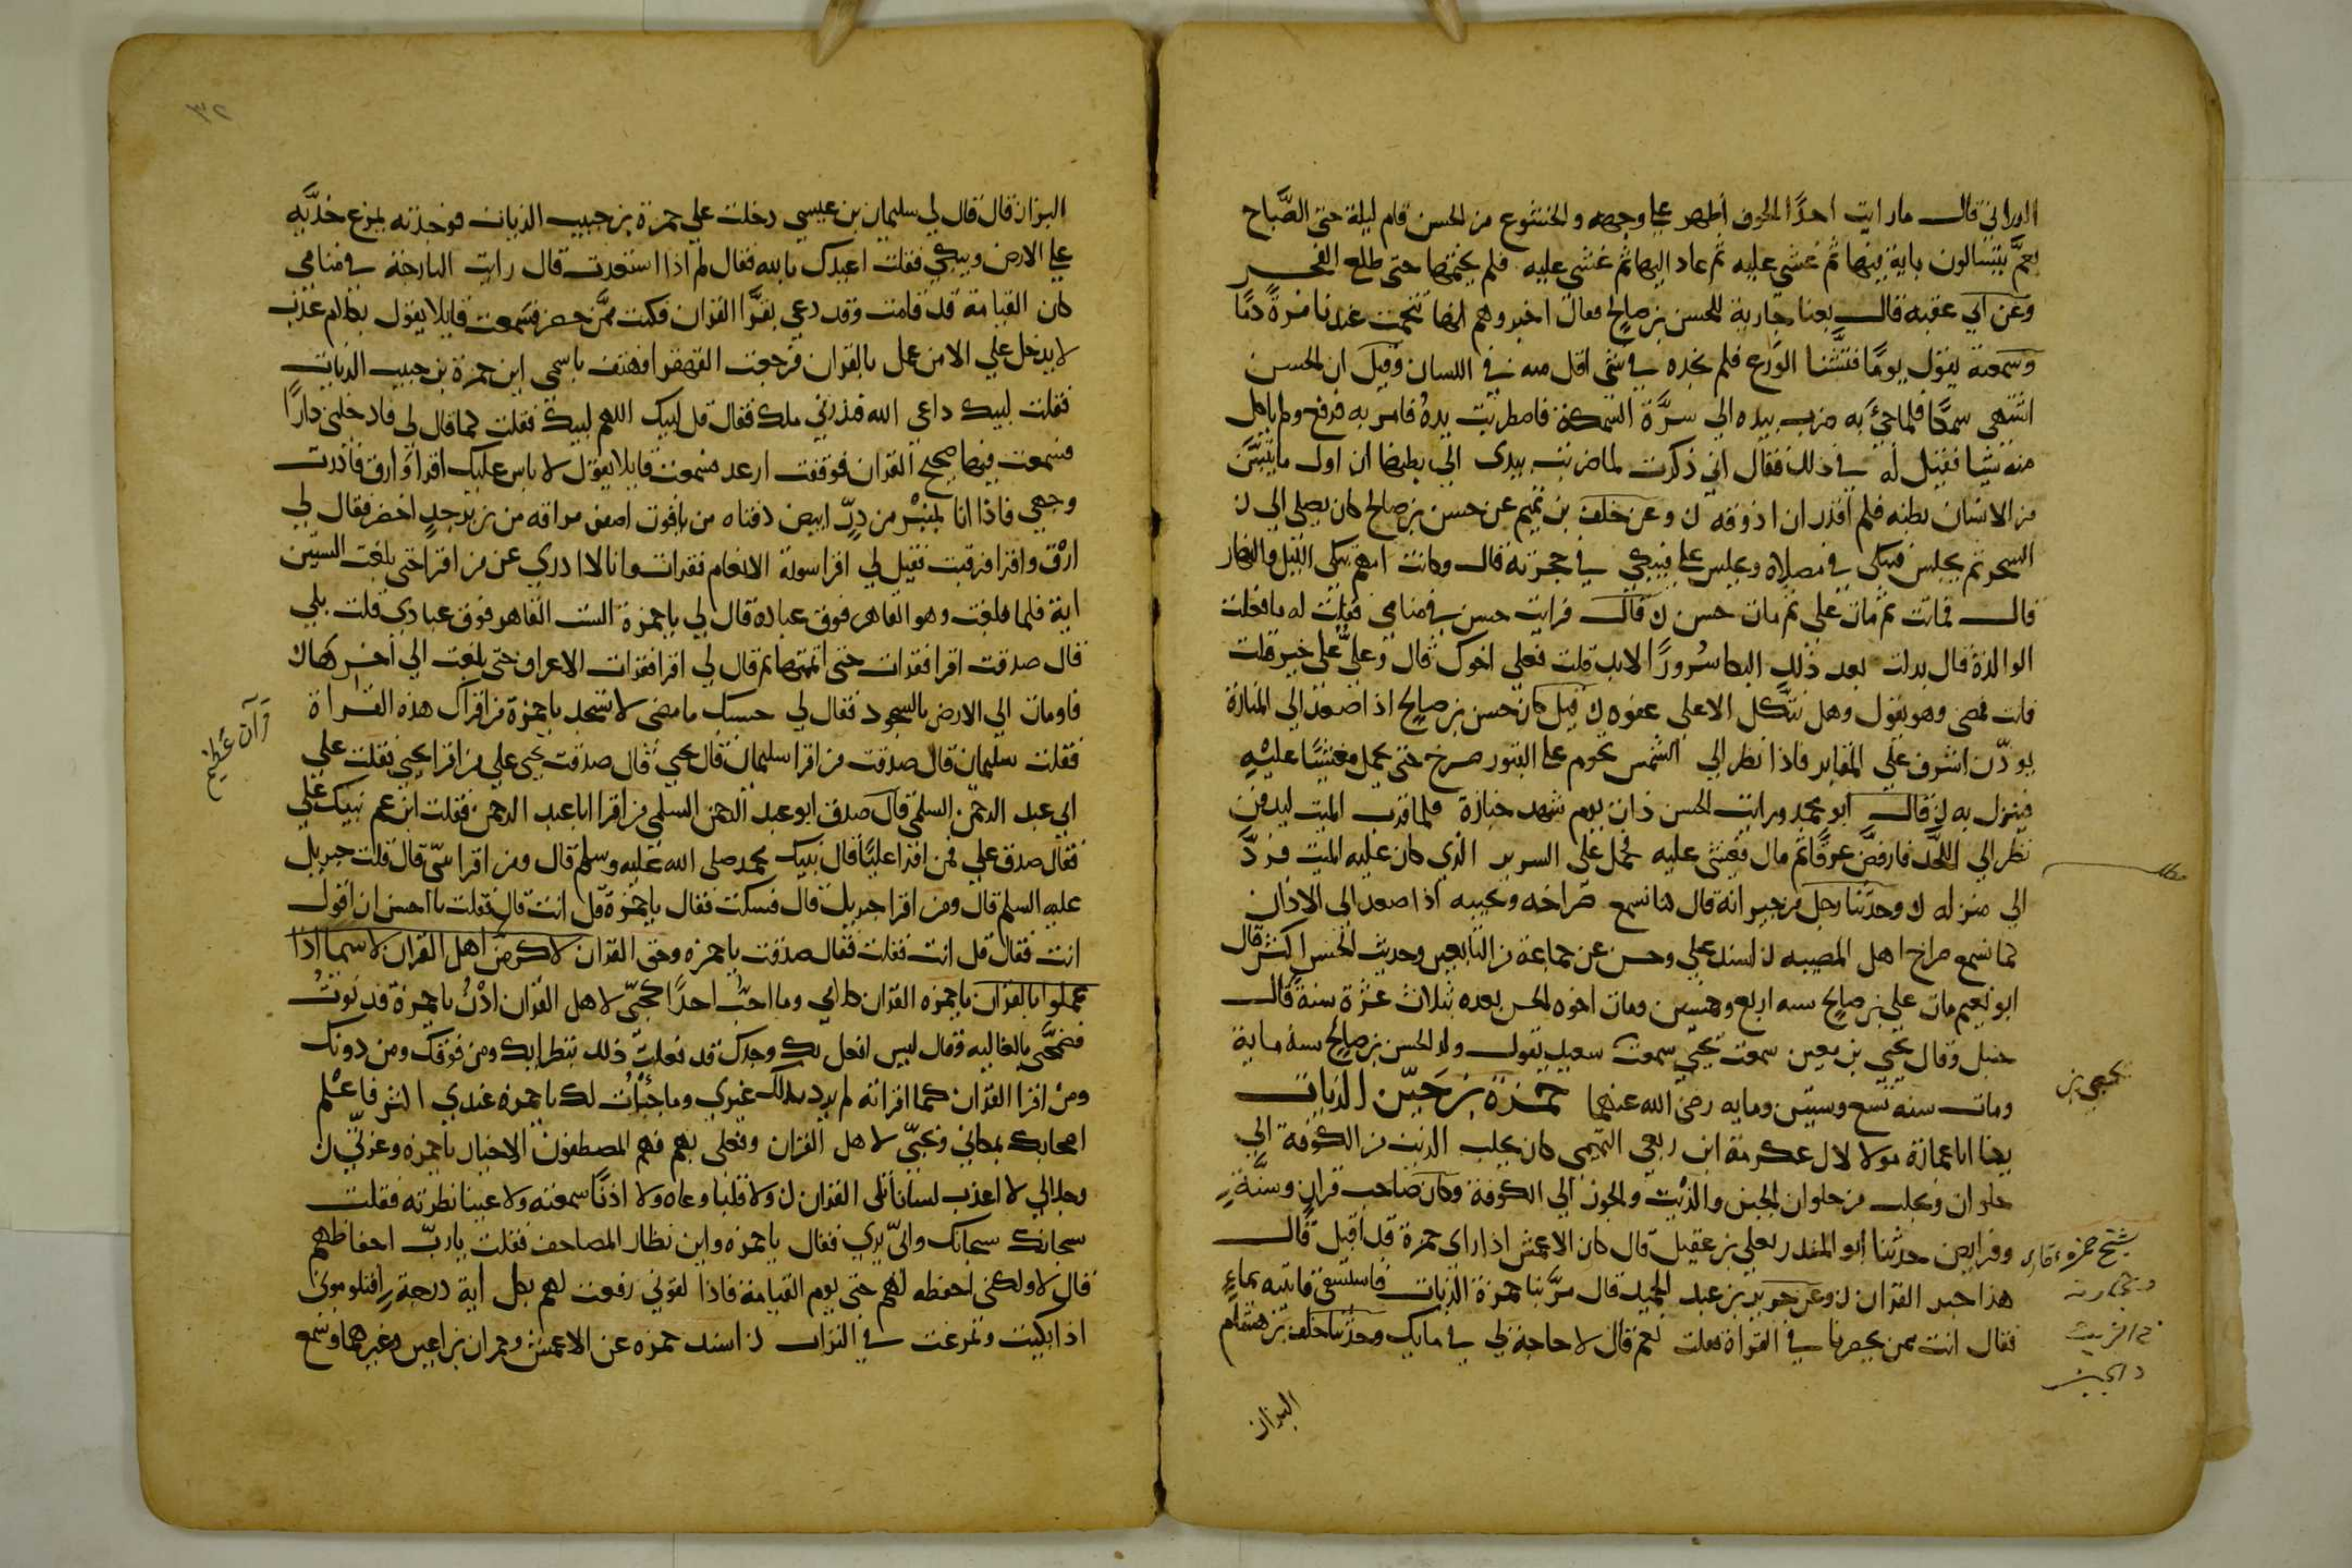 الداراني قال ما رايت احدًا الخوف أظهر على وجهه والخشوع من الحسن قام ليلة حتى الصَّباح
بعمَّ يتسالون باية فيها ثم غشي عليه ثم عاد اليها ثم غشي عليه فلم يختمها حتى طلع الفجر
وعن ابي عقبه قال بعنا جارية للحسن بن صالح فقال اخبروهم انها تنخمت عندنا مرةً دمًا
وسمعته يقول يومًا فتشنا الورع فلم نجده في شي اقل منه في اللسان وقيل ان الحسن
اشتهى سمكًا فلما جئ به ضرب بيده الى سرَّة السمكة فاضطربت يدهُ فامر به فرفع ولم ياكل
منه شيا فقيل له في ذلك فقال اني ذكرت لما ضربت بيدى الى بطنها ان اول ما ينتن
من الانسان بطنه فلم اقدر ان اذوقه ن وعن خلف بن تميم عن حسن بن صالح كان يصلى الى
السحر ثم يجلس فيبكى في مصلاه ويجلس على فيبكي في حجرته قال وكانت امهم تبكى الليل والنهار
قال فماتت ثم مات على ثم مات حسن ن قال فرايت حسن في منامي فقلت له ما فعلت
الوالدة قال بدلت بعد ذلك البكا سُرورًا لابد قلت فعلى اخوك قال وعليٌّ على خير قلت
فانت فمضى وهو يقول وهل نتّكل الا على عفوه ن قيل كان حسن بن صالح اذا صعد الى المنارة
يوذّن اشرف على المقابر فاذا نظر الى الشمس تحوم على القبور صرخ حتى يحمل مغشيًا عليْه
فينزل به ن قال ابو محمد ورايت الحسن ذات يوم شهد جنازة فلما قرب الميت ليدفن
نظر الى اللحد فارفضّ عرقًا ثم مال فغشى عليه فحُمل على السرير الذي كان عليه الميت فردّ
الى منزله ن وحدّثنا رجل من جيرانه قال كنا نسمع صراخه ونحيبه اذا صعد الى الاذان
كما نسمع صراخ اهل المصيبه ن اسند على وحسن عن جماعة من التابعين وحديث الحسن اكثر قال
ابو نعيم مات على بن صالح سنه اربع وخمسين ومات اخوه الحسن بعده بثلاث عشرة سنة قال
حنبل وقال يحيى بن معين سمعت يحيى سمعت سعيد يقول ولد الحسن بن صالح سنة ماية
يحيى بن
ومات سنه تسع وستين ومايه رضى الله عنهما حمزة بن حبيب الزيات
يكنا ابا عمارة مولا لال عكرمة ابن ربعي التيمى كان يجلب الزيت من الكوفة الى
حلوان ويجلب من حلوان الجبن والزيت والجوز الى الكوفة وكان صاحب قران وسنّة
وفرايض حدثنا ابو المنذر يعلى بن عقيل قال كان الاعمش اذا راى حمزة قد اقبل قال
هذا حبر القران ن وعن جرير بن عبد الحميد قال مرَّ بنا حمزة الزيات فاستسقى فاتيته بماءٍ
فقال انت ممن يحضرنا في القراة فقلت نعم قال لا حاجة لي في مايك وحدثنا خلف بن هشام
شيخ حمزه قاري
البزاز
٣٢
البزاز قال قال لي سليمان بن عيسى دخلت على حمزة بن حبيب الزيات فوجدته يمرغ خدَّيه
على الارض ويبكي فقلت اعيذك بالله فقال لم اذا استعذت قال رايت البارحة في منامي
كان القيامة قد قامت وقد دعى بقرَّا القران فكنت ممَّن حضر فسمعت قايلا يقول بكلام عذب
لا يدخل علي الا من عمل بالقران فرجعت القهقرا فهتف باسمي اين حمزة بن حبيب الزيات
فقلت لبيك داعي الله فبدرني ملك فقال قل لبيك اللهم لبيك فقلت كما قال لى فادخلنى دارًا
فسمعت فيها ضجيج القران فوقفت ارعد فسمعت قايلا يقول لا باس عليك اقرا وارق فادرت
وجهي فاذا انا بمنبر من درّ ابيض دفتاه من ياقوت اصفر مراقه من زبرجدٍ اخضر فقال لى
ارْق واقرا فرقيت فقيل لى اقرا سورة الانعام فقرات وانا لا ادري على من اقرا حتى بلغت الستين
اية فلما بلغت وهو القاهر فوق عباده قال لى يا حمزة الست القاهر فوق عبادى قلت بلى
قال صدقت اقرا فقرات حتى اتممتها ثم قال لى اقرا فقرات الاعراف حتى بلغت الى اخرها
فاومات الى الارض بالسجود فقال لى حسبك ما مضى لا تسجد يا حمزة من اقراك هذه القراة
قرآن عظيم
فقلت سليمان قال صدقت من اقرا سليمان قال يحيى قال صدقت يحيى على من اقرا يحيى فقلت على
ابى عبد الرحمن السلمى قال صدق ابو عبد الرحمن السلمى من اقرا ابا عبد الرحمن فقلت ابن عم نبيك على
فقال صدق على فمن اقرا عليًا قال نبيك محمد صلى الله عليه وسلم قال ومن اقرا نبيّ قال قلت جبريل
عليه السلم قال ومن اقرا جبريل قال فسكت فقال يا حمزة قل انت قال فقلت ما احسن ان اقول
انت فقال قل انت فقلت فقال صدقت يا حمزه وحق القران لاكرمنّ اهل القران لا سيما اذا
عملوا بالقران يا حمزه القران كلامي وما احبّ احدًا كحبّي لاهل القران ادْنُ يا حمزة فدنوتُ
فضمّخني بالغاليه وقال ليس افعل بك وحدك قد فعلت ذلك بنظرايك ومن فوقك ومن دونك
ومنْ اقرا القران كما اقراته لم يرد بذلك غيرى وما خبأتُ لك يا حمزة عندى اكثر فاعْلم
اصحابك بمكاني وبحبّي لاهل القران وفعلى بهم فهم المصطفون الاخيار يا حمزه وعزتي
وجلالي لا اعذب لسانا تلى القران ن ولا قلبا وعاه ولا اذنًا سمعته ولا عينا نظرته فقلت
سبحانك سبحانك وانّى يا رب فقال يا حمزه واين نظار المصاحف فقلت يا ربّ احفاظهم
قال لا ولكنى احفظه لهم حتى يوم القيامة فاذا لقونى رفعت لهم بكل اية درجة افتلومونى
اذا بكيت وتمرغت في التراب ن اسند حمزه عن الاعمش وحمران بن اعين وغيرهما وسمع